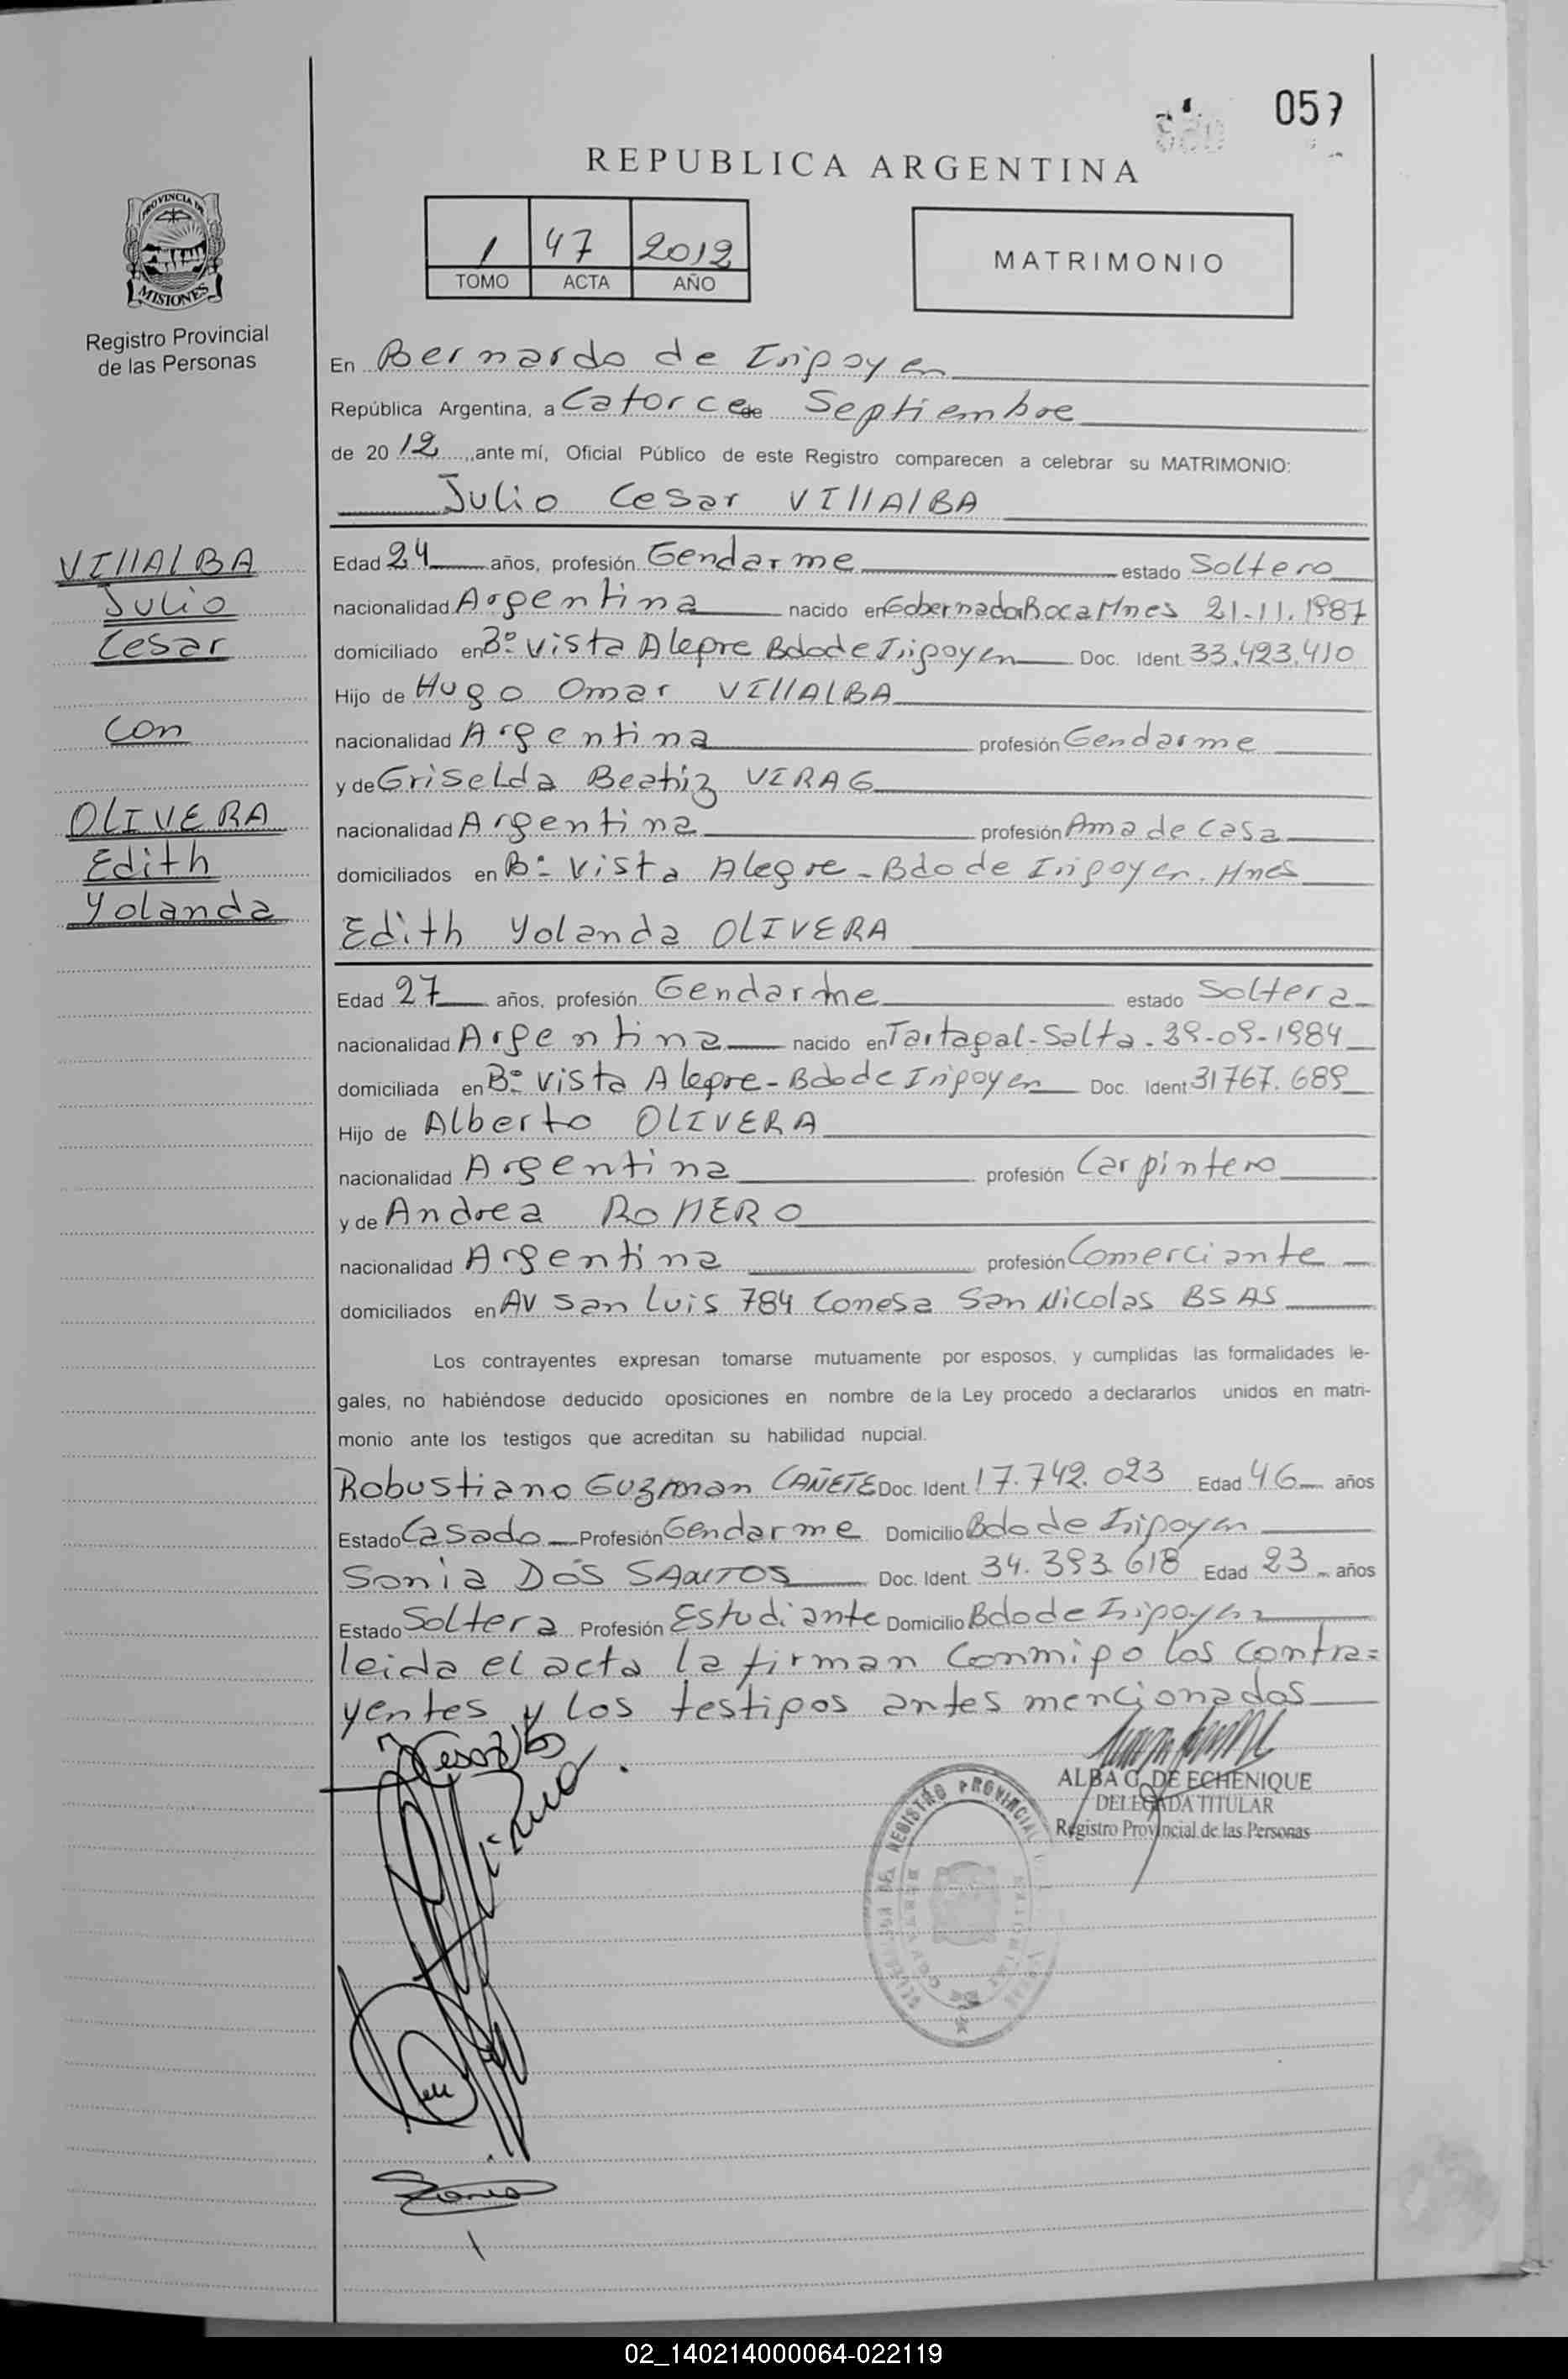 057
REPUBLICA ARGENTINA
PROVINCIA DE
MISIONES
Registro Provincial
de las Personas
1 47 2012
TOMO ACTA AÑO
MATRIMONIO
En Bernardo de Irigoyen
República Argentina, a Catorce de Septiembre
de 2012, ante mí, Oficial Público de este Registro comparecen a celebrar su MATRIMONIO:
Julio Cesar VIllAlBA
VIllALBA
Julio
Cesar
con
OlIVERA
Edith
Yolanda
Edad 24 años, profesión Gendarme estado Soltero
nacionalidad Argentina nacido en Gobernador Roca Mnes 21-11.1987
domiciliado en Bº Vista Alegre Bdo de Irigoyen Doc. Ident. 33.423.410
Hijo de Hugo Omar VIllALBA
nacionalidad Argentina profesión Gendarme
y de Griselda Beatriz VERAG
nacionalidad Argentina profesión Ama de Casa
domiciliados en Bº Vista Alegre - Bdo de Irigoyen. Mnes
Edith Yolanda OlIVERA
Edad 27 años, profesión Gendarme estado Soltera
nacionalidad Argentina nacido en Tartagal-Salta. 29-09-1984
domiciliada en Bº Vista Alegre - Bdo de Irigoyen Doc. Ident 31767.689
Hijo de Alberto OLIVERA
nacionalidad Argentina profesión Carpintero
y de Andrea ROMERO
nacionalidad Argentina profesión Comerciante
domiciliados en AV San Luis 784 Conesa San Nicolas BS AS
Los contrayentes expresan tomarse mutuamente por esposos, y cumplidas las formalidades le-
gales, no habiéndose deducido oposiciones en nombre de la Ley procedo a declararlos unidos en matri-
monio ante los testigos que acreditan su habilidad nupcial.
Robustiano Guzman CAÑETE Doc. Ident. 17.742.023 Edad 46 años
Estado Casado Profesión Gendarme Domicilio Bdo de Irigoyen
Sonia DOS SANTOS Doc. Ident. 34.393.618 Edad 23 años
Estado Soltera Profesión Estudiante Domicilio Bdo de Irigoyen
leida el acta la firman Conmigo los contra=
yentes y los testigos antes mencionados
ALBA G. DE ECHENIQUE
DELEGADA TITULAR
Registro Provincial de las Personas
REGISTRO PROVINCIAL
Sonia
02_140214000064-022119